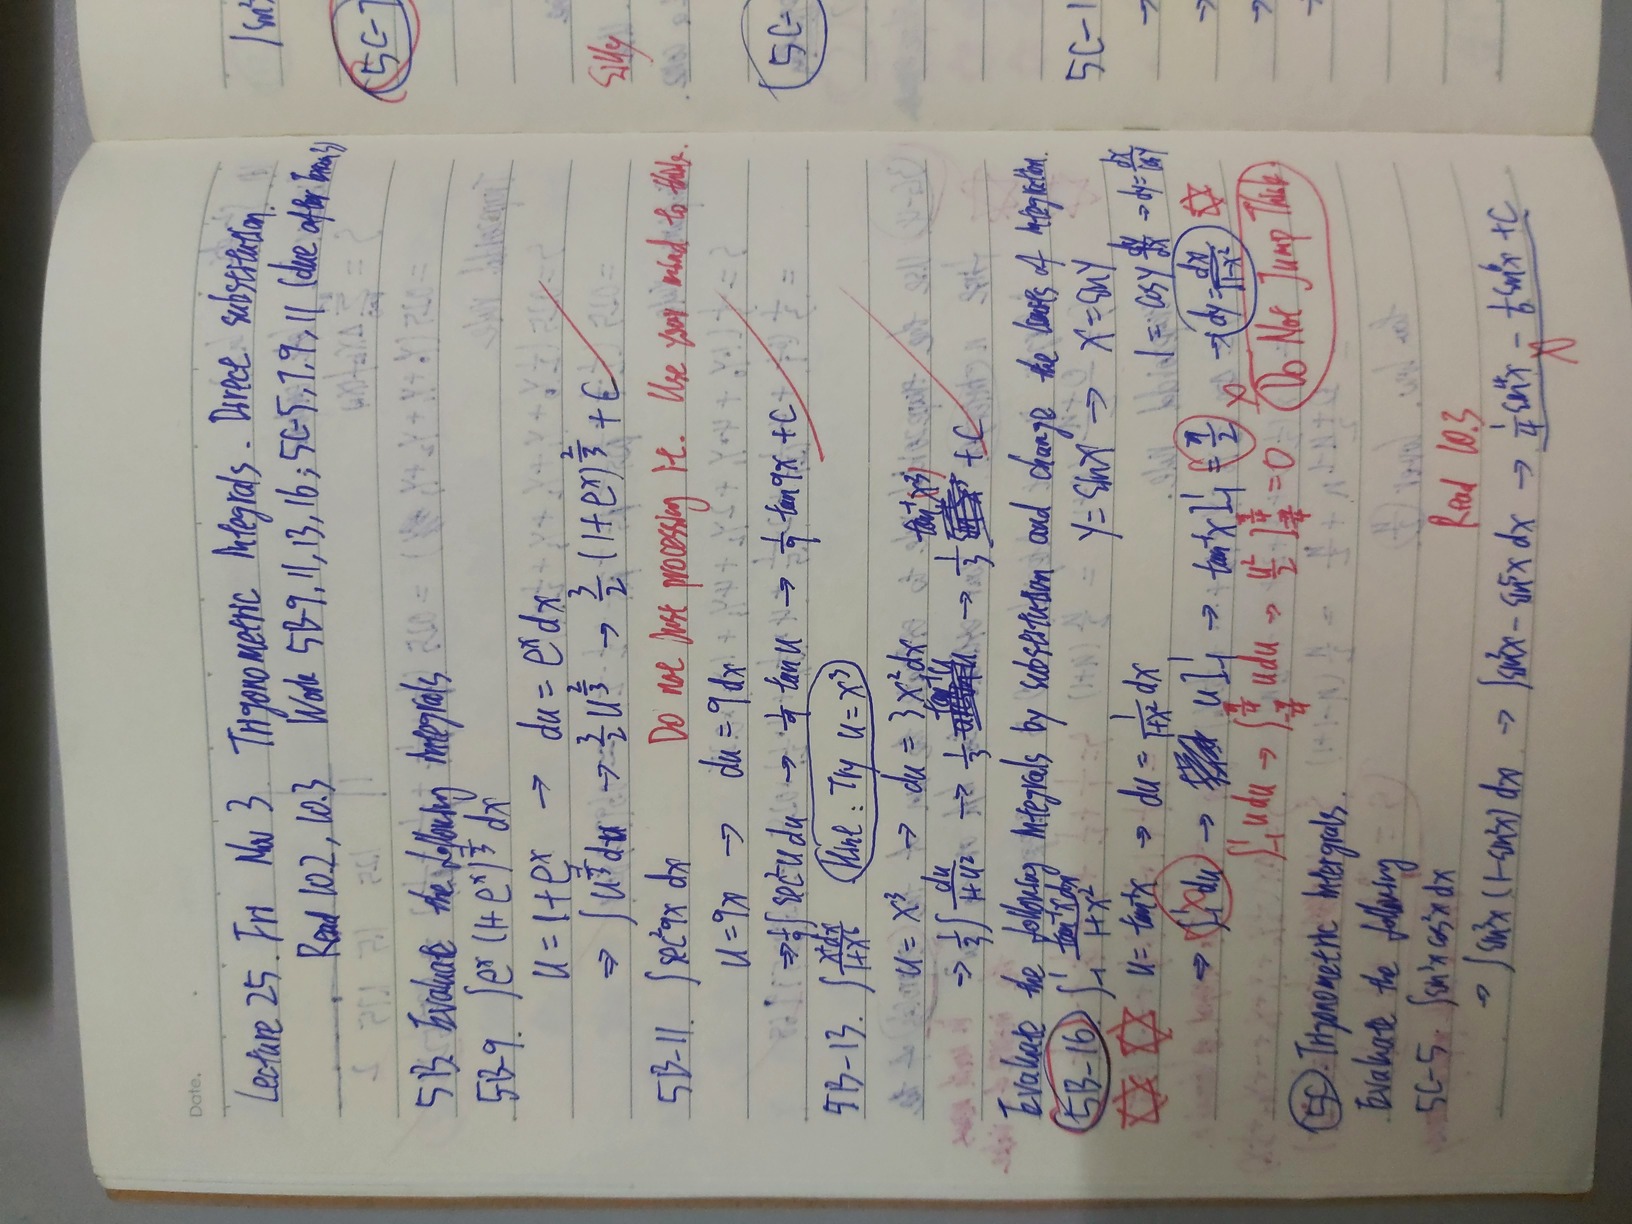 Date.
Lecture 25. Fri Nov 3 Trigonometric Integrals. Direct substitution.
Read 10.2, 10.3 Work 5B-9, 11, 13, 16; 5C-5, 7, 9, 11 (due after Exam 3)
5B. Evaluate the following integrals
5B-9. ∫eˣ (1+eˣ)^(-1/3) dx
u = 1+eˣ → du = eˣdx
⇒ ∫u^(-1/3) du → 3/2 u^(2/3) → 3/2 (1+eˣ)^(2/3) + C
5B-11. ∫sec²9x dx Do not just processing it. Use your mind to think.
u = 9x → du = 9dx
⇒ 1/9 ∫ sec²u du → 1/9 tan u → 1/9 tan 9x + C
5B-13. ∫ x²dx/1+x⁶ Hint: Try u = x³
u = x³ → du = 3x²dx
→ 1/3 ∫ du/1+u² → 1/3 tan⁻¹u → 1/3 tan⁻¹(x³) + C
Evaluate the following integrals by substitution and change the limits of integration.
5B-16. ∫₋₁¹ tan⁻¹x dx/1+x² y = sin⁻¹x → x = sin y
u = tan⁻¹x → du = 1/1+x² dx 1 = cos y dy/dx → dy = dx/cos y
⇒ ∫₋₁¹ du → u]₋₁¹ → tan⁻¹x]₋₁¹ = π/2 x → dy = dx/√1-x²
∫₋₁¹ u du → ∫_(-π/4)^(π/4) u du → u²/2 ]_(-π/4)^(π/4) = 0 Do Not Jump Think
5C. Trigonometric Intergrals.
Evaluate the following
5C-5. ∫sin³x cos²x dx
Read 10.3
→ ∫sin³x (1-sin²x) dx → ∫sin³x - sin⁵x dx → 1/4 sin⁴x - 1/6 sin⁶x + C
x
5C-7
silly
5C-
5C-1